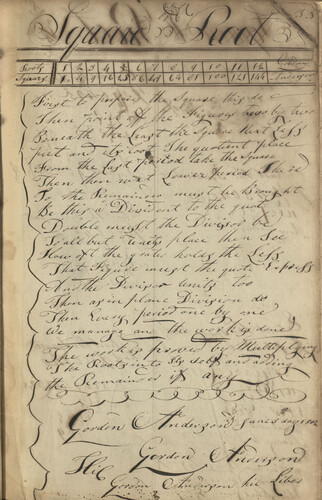 Square Root
Roots 1 2 3 4 5 6 7 8 9 10 11 12
Square 1 4 9 16 25 36 49 64 81 100 121 144 Anderson
First to prepare the Square this do
Then point off the Figures two by two
Beneath the Last the Square that Less
put and its root The quotient place
From the Last period take the Square
Then the next Lower Period There
To the Remainder must be Brought
Be this a Dividend to the quot
Double must the Divisor be
to all but units place then See
How oft the greater holds the Less
That Figure must the quote Express
And the Divisor units too
Then as in plane Division do
Then Every period one by one
We manage and the work is done
The work is proved by Multiplying
The Root into its Self and adding
the Remainder if any
Gordon Anderson
Gordon Anderson
Hic
Gordon Anderson his Liber